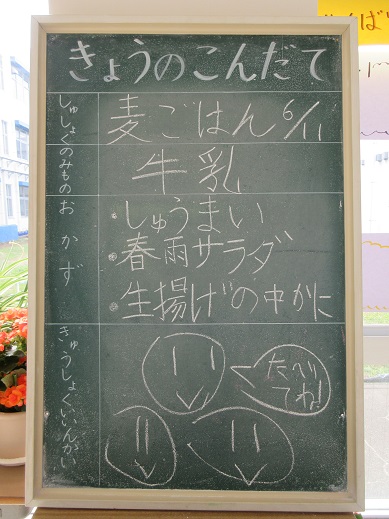 きょうのこんだて
しゅしょく
麦ごはん 6/11
のみもの
牛乳
おかず
・しゅうまい
・春雨サラダ
・生揚げの中かに
きゅうしょくいいんかい
たべ
てね!